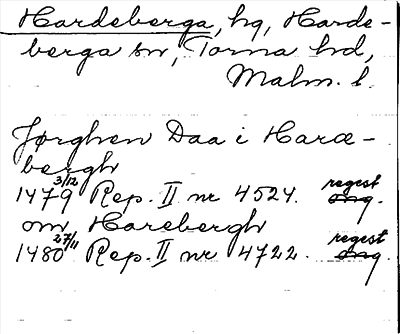 Hardeberga, hg, Harde-
berga sn, Torna hd,
Malm. l.
Jørghen Daa i Haræ-
bergh
1479 3/12 Rep. II nr 4524. regest
orig.
om Harebergh
1480 27/11 Rep. II nr 4722. regest
orig.